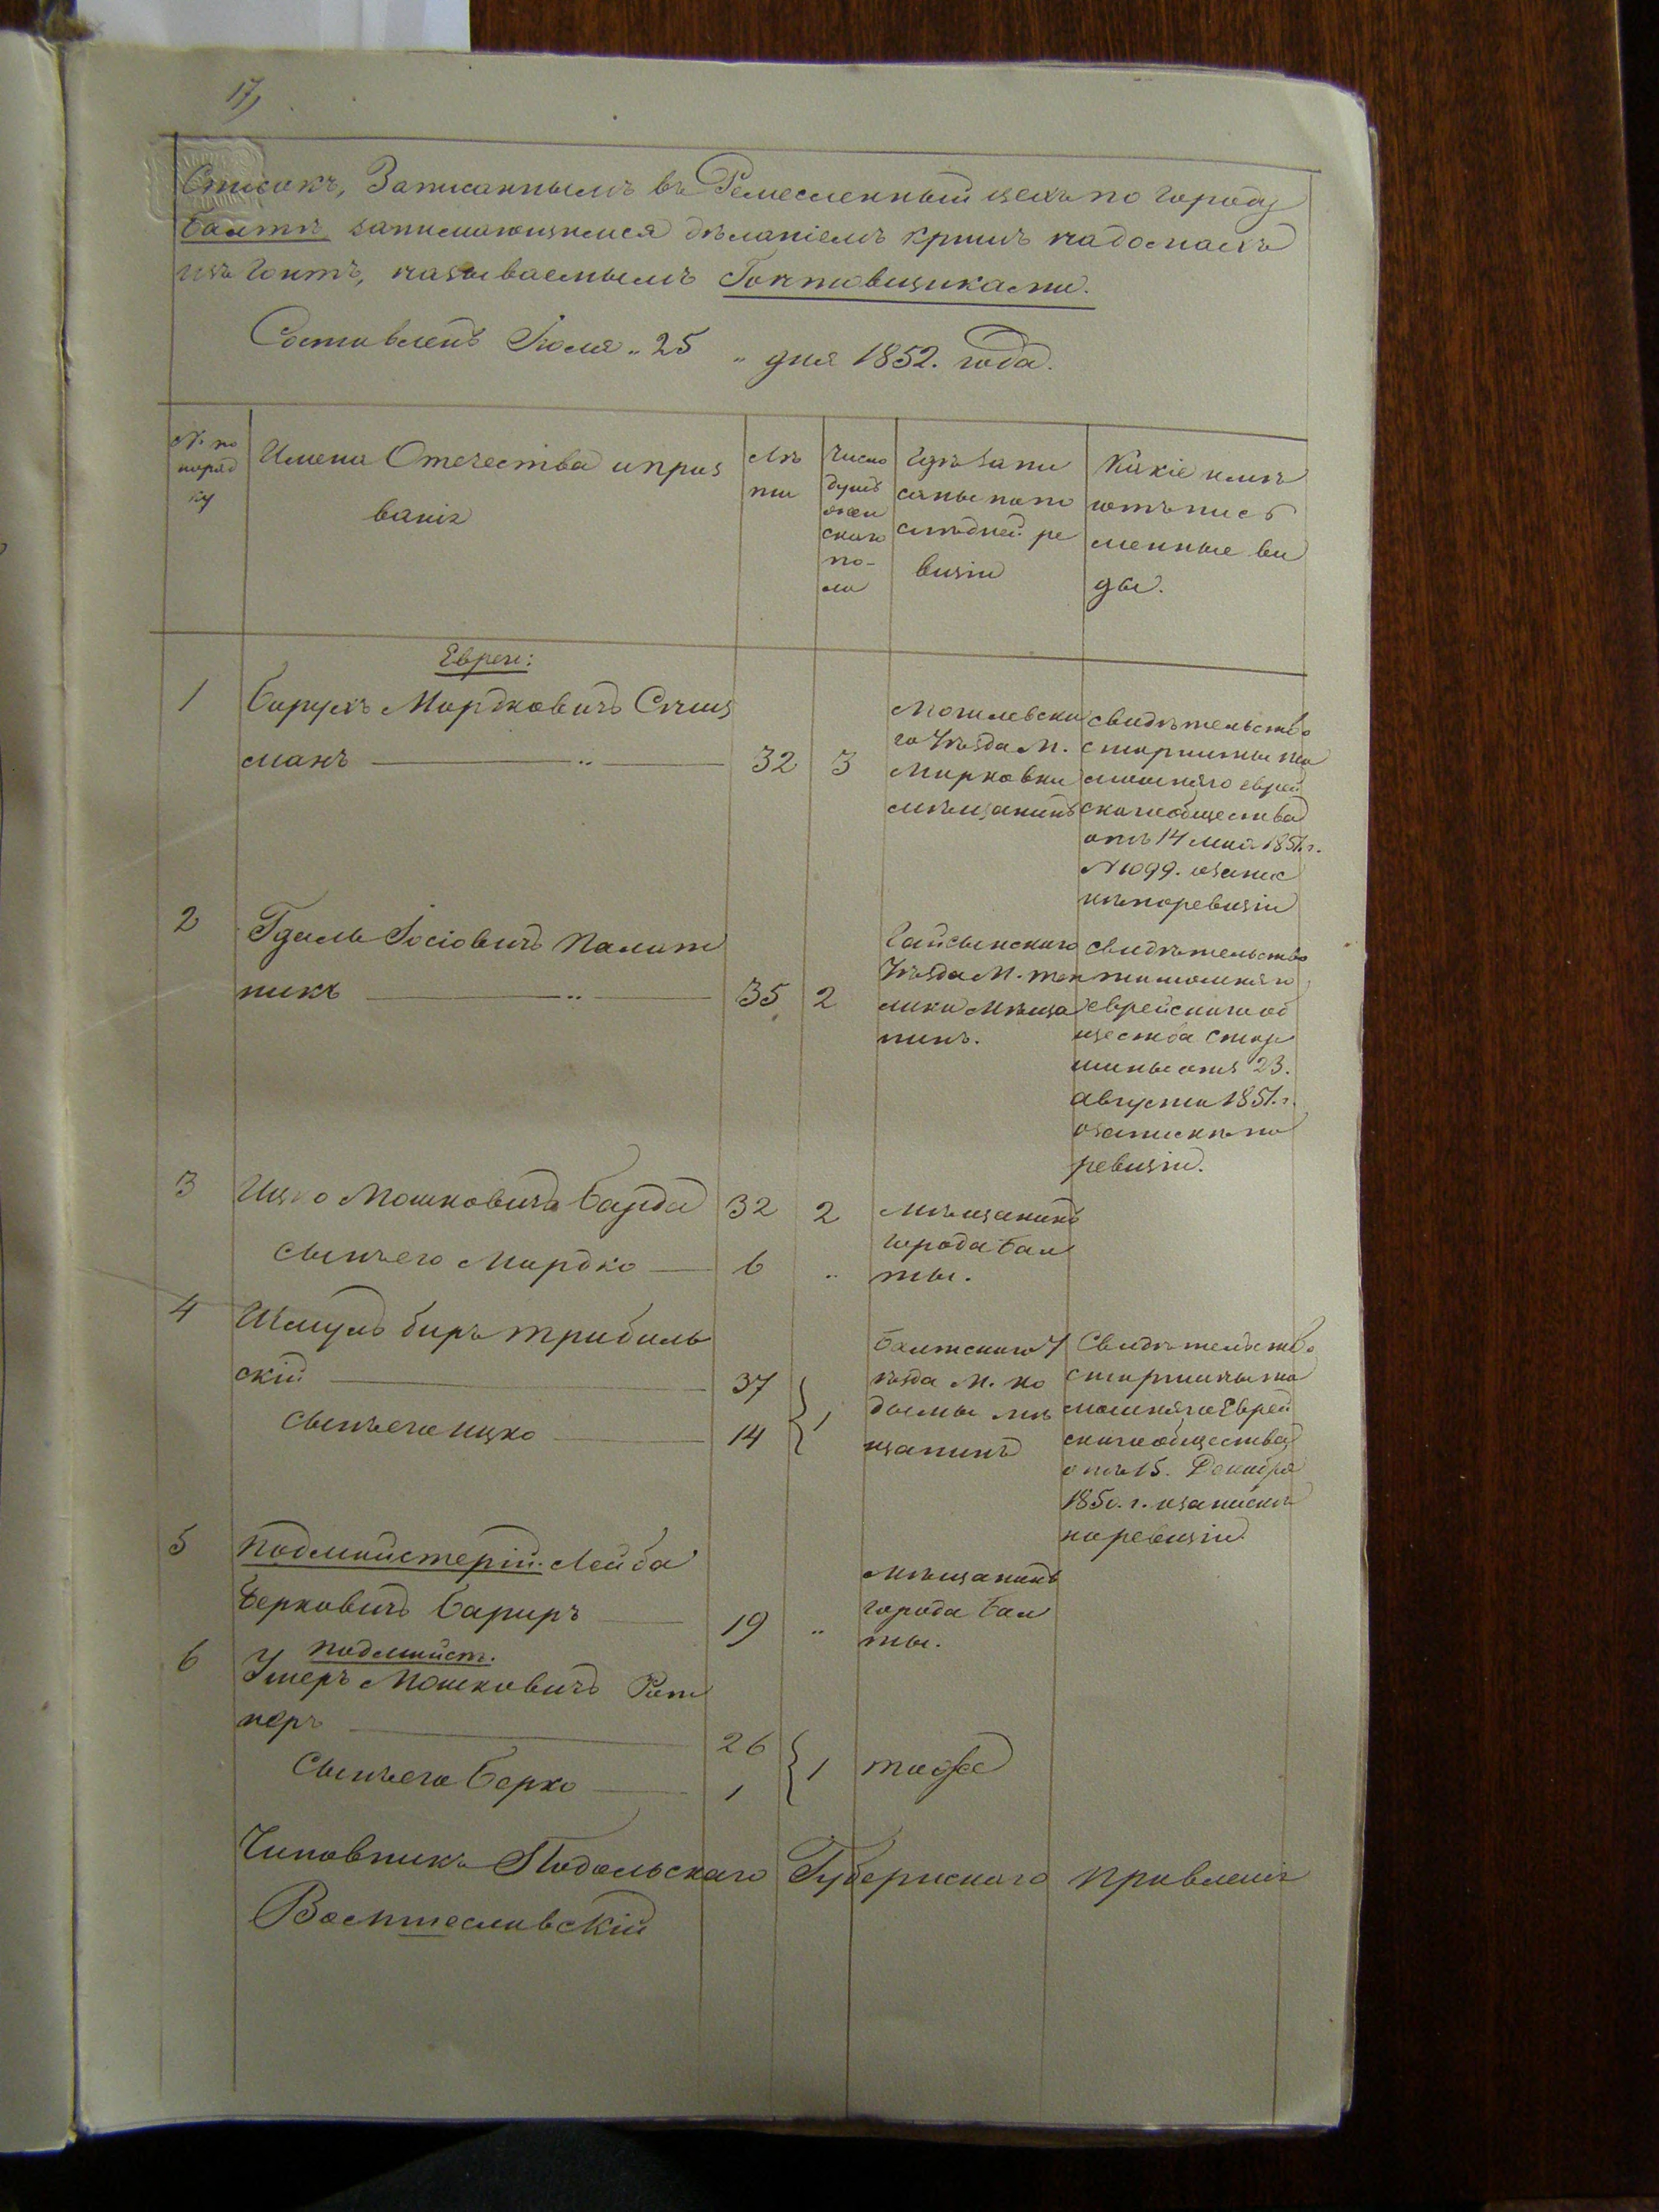 17,
Списокъ, Записаннымъ въ Ремесленный цехъ по городу
Балтѣ занимающимся дѣланіемъ крышъ на домахъ
изъ Гонтъ, называемымъ Гонтовщиками.
Составленъ Іюля „ 25 „ дня 1852. года.
№ по поряд ку
Имена Отечества и проз ванія
Лѣ ты
Число душъ жен скаго по- ла
Гдѣ запи саны по по слѣдней ре визіи
Какіе имѣ ютъ пись менные ви ды.
Евреи:
1
Барухъ Мордковичъ
манъ — „ — 32 3
Могилевска го Уѣзда М. Мурховки мѣщанинъ
Свидѣтельство старшины та мошняго еврей скаго общества отъ 14 мая 1851. г. № 1099. о запис кѣ по ревизіи
2
Гдаль Іосіовичъ Палат
никъ — „ — 35 2
Гайсынскаго Уѣзда М. теп лика Мѣща нинъ.
Свидѣтельство тамошняго еврейскаго об щества Стар шины отъ 23. августа 1851. г. о запискѣ по ревизіи.
3
Ицко Мошковичъ Барда 32 2
сынъ его Мордко — 6 „
Мѣщанинъ города Бал ты.
4
Шмуль Биръ Трибиль
скій — 37
сынъ его ицко — 14 } 1
Балтскаго У ѣзда М. Ко дымы мѣ щанинъ
Свидѣтельство старшины та мошняго Еврей скаго общества отъ 15. Декабря 1850. г. о запискѣ по ревизіи
5
подмайстерій. Лейба
Берковичъ — 19 „
Мѣщанинъ города Бал ты.
6
подмайст.
Ушеръ Мошковичъ Рот
неръ — 26
Сынъ его Берко — 1 } 1
тоже
Чиновникъ Подольскаго Губернскаго правленія